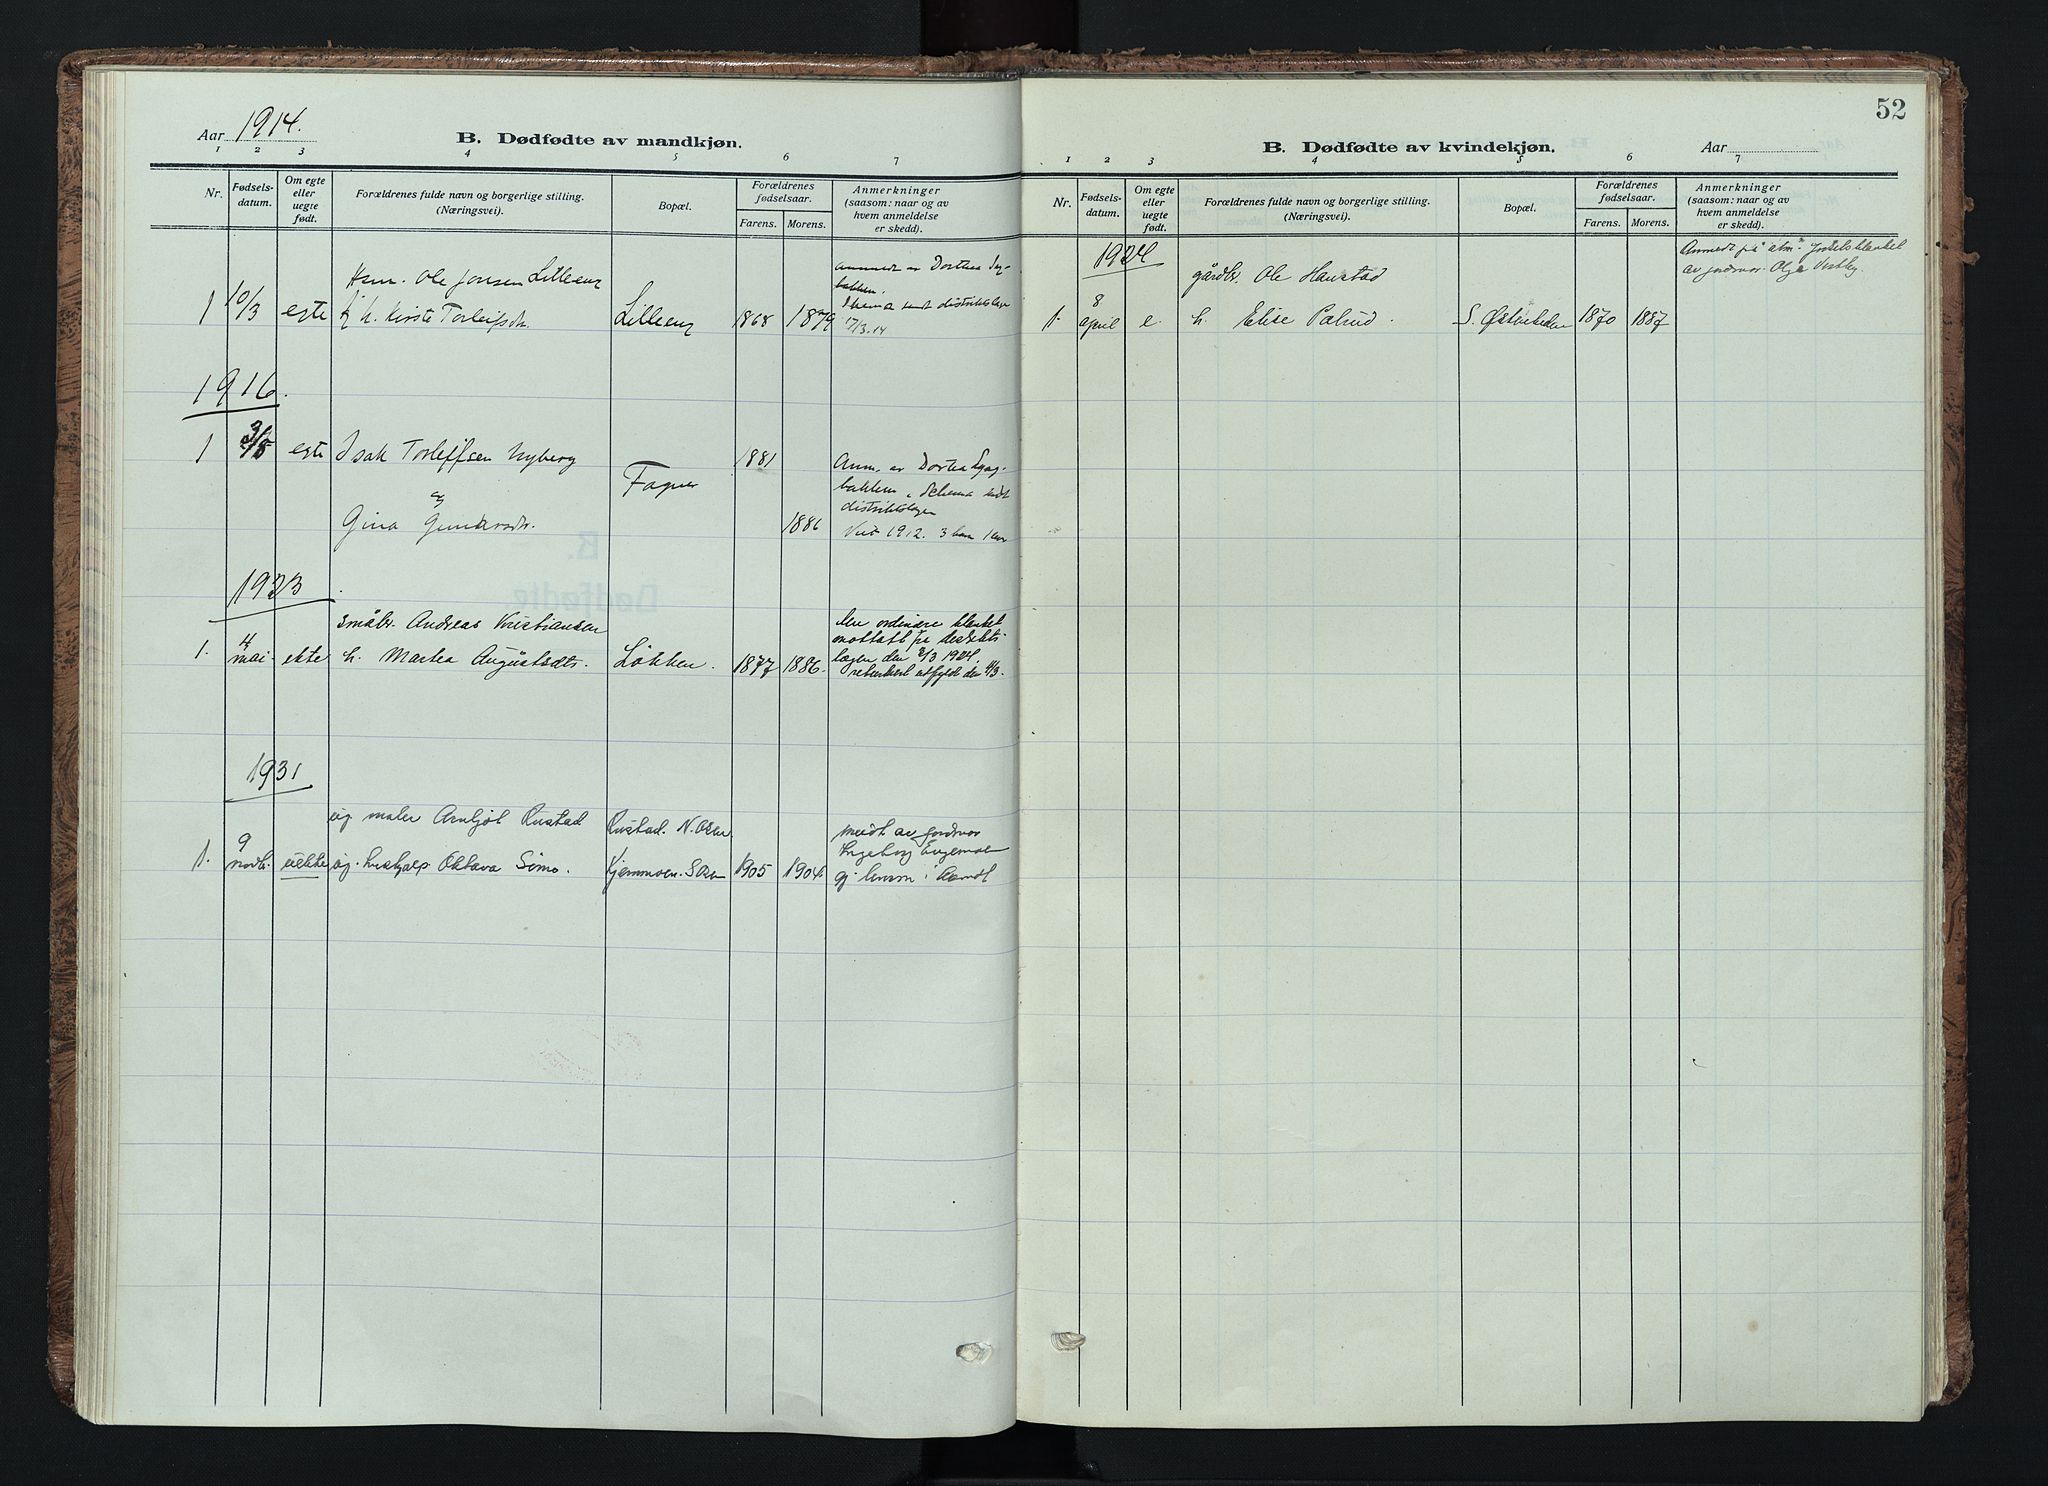 Aar 1914.
B. Dødfødte av mandkjøn.
1 2 3 4 5 6 7
Nr. Fødsels-datum. Om egte eller uegte født. Forældrenes fulde navn og borgerlige stilling. (Næringsvei). Bopæl. Forældrenes fødselsaar. Farens. Morens. Anmerkninger (saasom: naar og av hvem anmeldelse er skedd).
Ole Jonsen Lilleeng
anmeldt av Dorthea
bakken.
1 10/3 egte h. Kirsti Torleifsdr. Lilleeng 1868 1879 Skema sendt distriktslægen
17/3.14
1916.
1 egte Isak Torleffsen Nyberg 1881 Anm. av Dortea
bakken, Schema sendt
og distriktslægen
Gina 1886 Viet 1912. 3 barn
1923
småbr. Andreas Kristiansen Den ordinære blanket
1. 4 mai ekte h. Martea Augustsdtr. Løkken. 1877 1886. mottatt fra distrikts-
lægen den 2/3 1924,
utfyldt den 4/3.
1931
ug. maler Arnljot Rustad Rustad. N. Osen meldt av jordmor
1. 9 novbr. uekte ug. hushjelp Oktava Sømo. Kjemmoen. S. Osen 1905 1904. Ingeborg Engemoen
gj. lensm. i Aamot
52
B. Dødfødte av kvindekjøn.
Aar
1 2 3 4 5 6 7
Nr. Fødsels-datum. Om egte eller uegte født. Forældrenes fulde navn og borgerlige stilling. (Næringsvei). Bopæl. Forældrenes fødselsaar. Farens. Morens. Anmerkninger (saasom: naar og av hvem anmeldelse er skedd).
1924 Anmeldt på alm. fødselsblanket
gårdbr. Ole Haustad av jordmor Olga Vestby.
1. 8 april e. h. Elise Palrud. S. Østvikeden 1870 1887